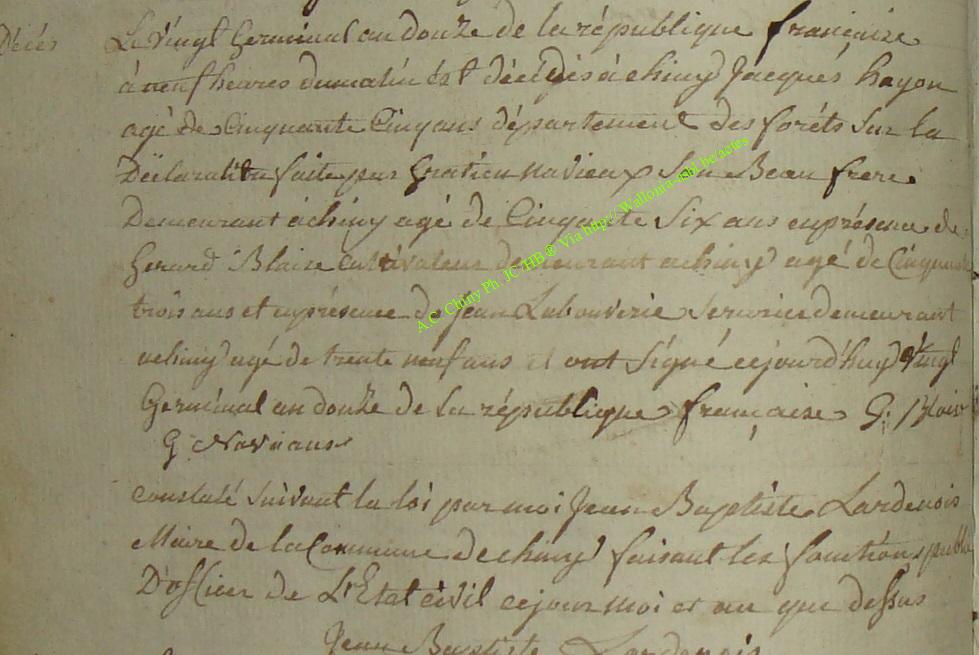 Décés
Le vingt Germinal an douze de la république françaisse
à neuf heures du matin est décédés à chiny Jacques hayon
agé de Cinquante Cinq ans département des foréts sur la
Déclaration faite par Gratien navieaux Son Beau frere
Demeurant à chiny agé de Cinquante Six ans enprésence de
Gerard Blaise Cultivateur demeurant achiny agé de Cinquante
trois ans et enprésence de Jean Labouverie Serurier demeurant
achiny agé de trente neuf ans et ont Signé cejourd'huy Vingt
Germinal an douze de la république françaisse G: Blaise
G Naviaux
constaté Suivant la loi par moi Jean Baptiste Lardenois
Maire de la Commune de chiny faisant les fonctions publi
D'officier de L'Etat civil cejour moi et an que dessus
Jean Baptiste Lardenois
A.C. Chiny Ph. JC-HB® Via http://Wallonia-asbl.be/actes